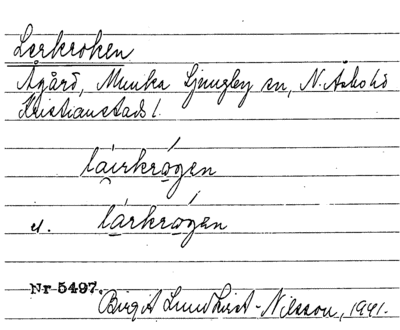 Lerkroken
Ågård, Munka Ljungby sn, N. Åsbo hd
Kristianstads l.
lairkrågen
el. lårkrågen
Nr 5497.
Birgit Lundkvist-Nilsson, 1941.